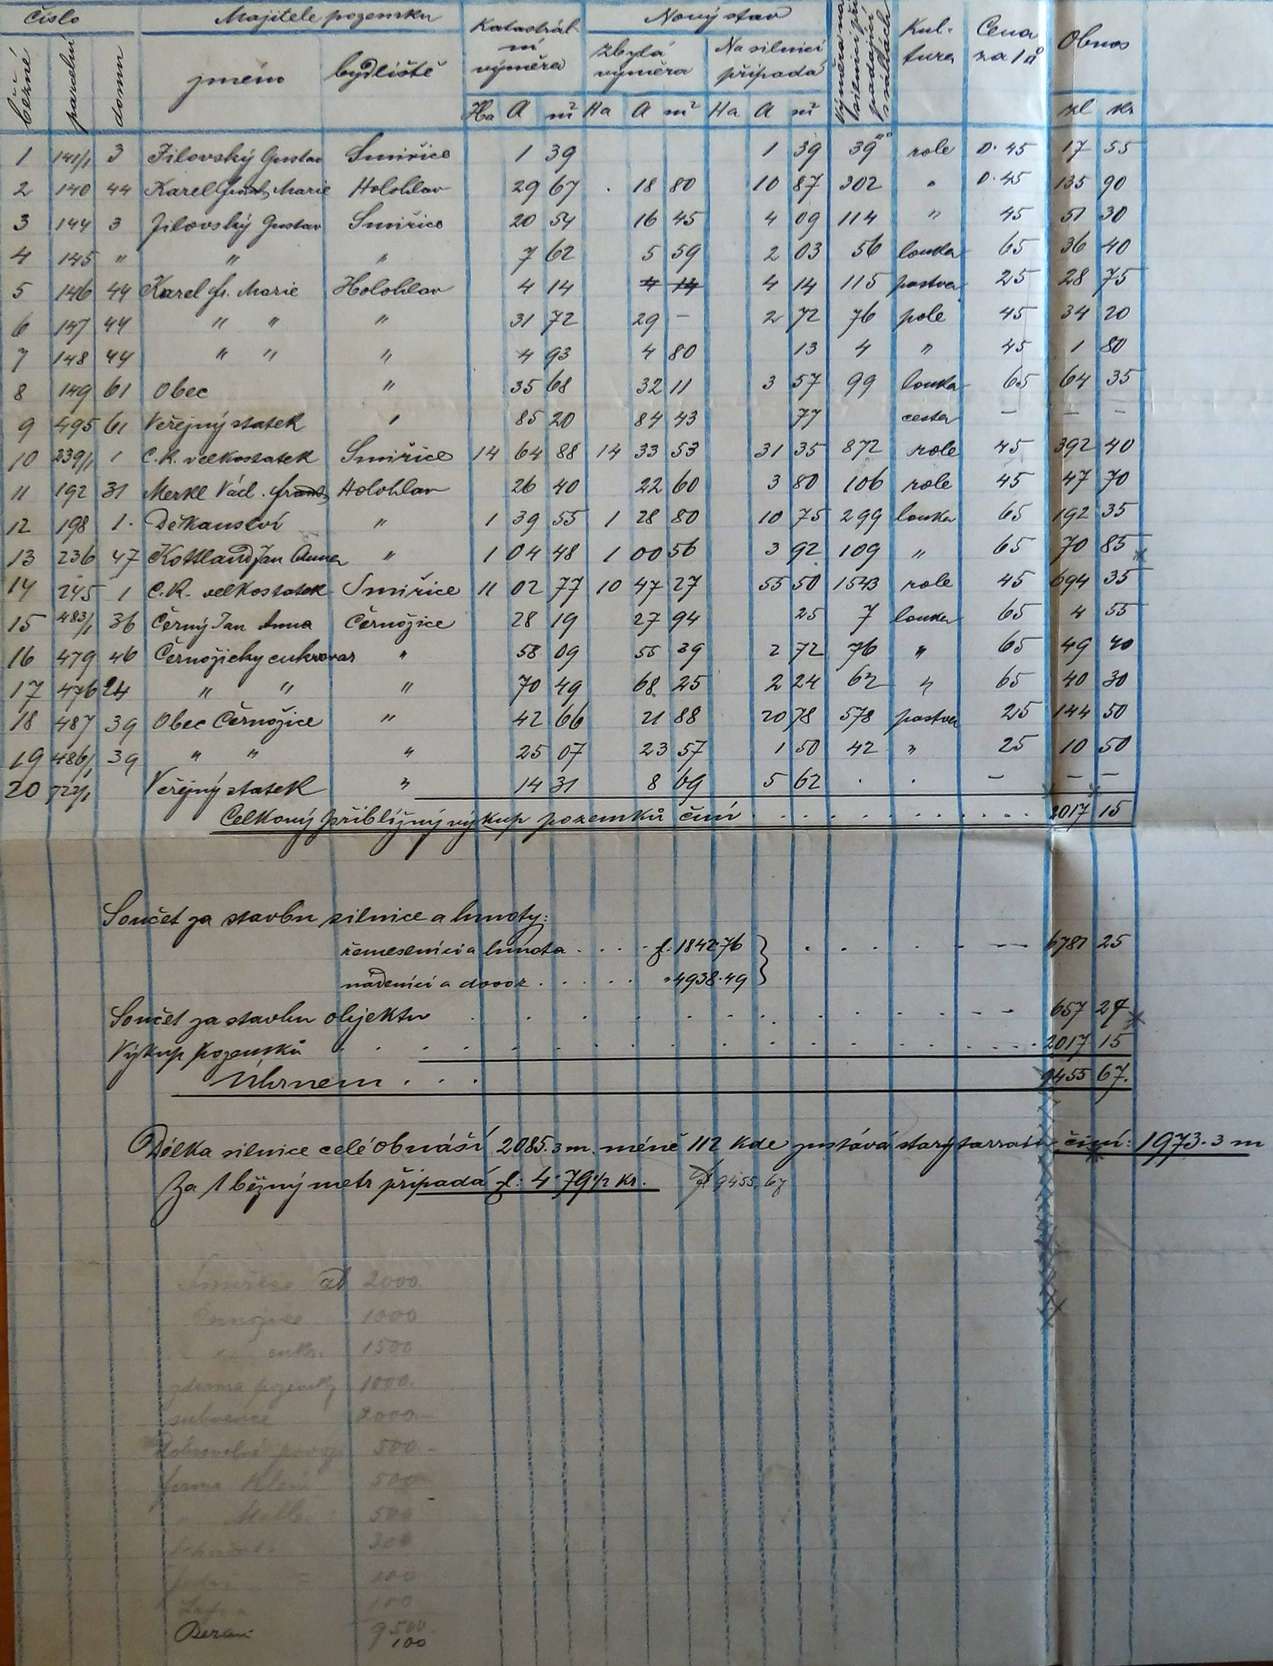 Číslo Majitele pozemku Katastrální výměra Nový stav Výměra na silnici připadající v sáhách Kultura Cena za 1 □° Obnos
běžné parcelní domu jméno bydliště zbylá výměra Na silnici připadá
Ha A m² Ha A m² Ha A m² zl kr
1 141/1 3 Jilovský Gustav Smiřice 1 39 1 39 39 role 0·45 17 55
2 140 44 Karel Frant. Marie Holohlav 29 67 18 80 10 87 302 " 0·45 135 90
3 144 3 Jilovský Gustav Smiřice 20 54 16 45 4 09 114 " 45 51 30
4 145 " " " 7 62 5 59 2 03 56 louka 65 36 40
5 146 44 Karel Fr. Marie Holohlav 4 14 4 14 4 14 115 pastva 25 28 75
6 147 44 " " " 31 72 29 – 2 72 76 pole 45 34 20
7 148 44 " " " 4 93 4 80 13 4 " 45 1 80
8 149 61 Obec " 35 68 32 11 3 57 99 louka 65 64 35
9 495 61 Veřejný statek " 85 20 84 43 77 cesta – – –
10 239/1 1 C.K. velkostatek Smiřice 14 64 88 14 33 53 31 35 872 role 45 392 40
11 192 31 Merkl Václ. Frant. Holohlav 26 40 22 60 3 80 106 role 45 47 70
12 198 1. Děkanství " 1 39 55 1 28 80 10 75 299 louka 65 192 35
13 236 47 Kottland Jan Anna " 1 04 48 1 00 56 3 92 109 " 65 70 85
14 245 1 C.K. velkostatek Smiřice 11 02 77 10 47 27 55 50 1543 role 45 694 35
15 483/1 36 Černý Jan Anna Černožice 28 19 27 94 25 7 louka 65 4 55
16 479 46 Černožický cukrovar " 58 09 55 39 2 72 76 " 65 49 40
17 476 24 " " " 70 49 68 25 2 24 62 " 65 40 30
18 487 39 Obec Černožice " 42 66 21 88 20 78 578 pastva 25 144 50
19 486/1 39 " " " 25 07 23 57 1 50 42 " 25 10 50
20 722/1 Veřejný statek " 14 31 8 69 5 62 . . – – –
Celkový přibližný výkup pozemků činí . . . . . . . . . . 2017 15
Součet za stavbu silnice a hmoty:
řemeslníci a hmota . . . . f. 1842·76 } . . . . . — 6781 25
nádeníci a dovoz . . . . . " 4938·49
Součet za stavbu objektu . . . . . . . . . . 657 27
Výkup pozemků . . . . . . . . . . 2017 15
Úhrnem . . . 9455 67.
Délka silnice celé obnáší 2085·3 m. méně 112 kde zůstává starý tarras činí: 1973·3 m
Za 1 běžný metr připadá zl. 4·79 1/2 kr. zl 9455·67
Smiřice zl 2000.
Černožice 1000
" cukr. 1500
zdarma pozemky 1000.
subvence 2000.—
Dobrovolné 500.—
firma 500
500
300
100
100
9500
Beran: 100